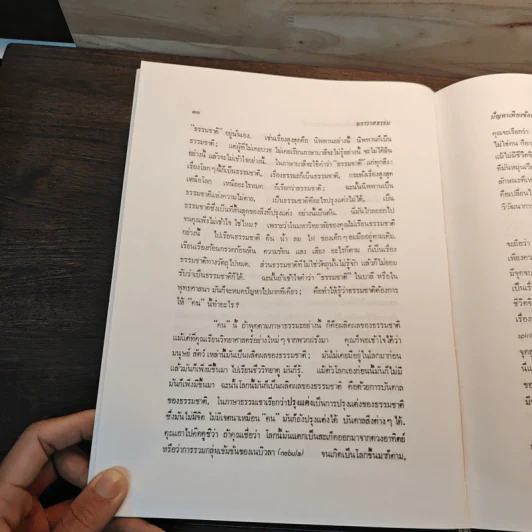 ๓๐
ฆราวาสธรรม
"ธรรมชาติ" อยู่นั่นเอง. เช่นเรื่องสูงสุดคือ นิพพานอย่างนี้ นิพพานก็เป็น
ธรรมชาติ; แต่ผู้ที่ไม่เคยบวช ไม่เคยเรียนภาษาบาลีจะไม่รู้อย่างนี้ จะไม่ได้ยิน
อย่างนี้ แล้วจะไม่เข้าใจอย่างนี้. ในภาษาบาลีจะใช้คำว่า "ธรรมชาติ" แก่ทุกสิ่ง:
เรื่องโลกๆ นี้ก็เป็นธรรมชาติ, เรื่องธรรมะก็เป็นธรรมชาติ, กระทั่งเรื่องสูงสุด
เหนือโลก เหนืออะไรหมด ก็เรียกว่าธรรมชาติ; ฉะนั้นนิพพานเป็น
ธรรมชาติแห่งความไม่ตาย, เป็นธรรมชาติที่อะไรปรุงแต่งไม่ได้, เป็น
ธรรมชาติซึ่งเป็นที่สิ้นสุดของสิ่งที่ปรุงแต่ง อย่างนี้เป็นต้น. นี่มันไกลออกไป
จนคุณฟังไม่เข้าใจ ใช่ไหม? เพราะว่าในมหาวิทยาลัยของคุณไม่เรียนธรรมชาติ
อย่างนี้ ไปเรียนธรรมชาติ ดิน น้ำ ลม ไฟ ของเด็กๆ อมมืออยู่ตามเดิม.
เรียนเรื่องก้อนกรวดก้อนหิน ความร้อน แสง เสียง อะไรก็ตาม ก็เป็นเรื่อง
ธรรมชาติทางวัตถุไปหมด. ส่วนธรรมชาติที่ไม่ใช่วัตถุนั้นไม่รู้จัก แล้วก็ไม่ยอม
รับว่าเป็นธรรมชาติก็ได้. ฉะนั้นถ้าเข้าใจคำว่า "ธรรมชาติ" ในบาลี หรือใน
พุทธศาสนา มันก็จะหมดปัญหาไปมากทีเดียว; คือทำให้รู้ว่าธรรมชาติต้องการ
ให้ "คน" นี้ทำอะไร?
"คน" นี้ ถ้าพูดตามภาษาธรรมะอย่างนี้ ก็คือผลิตผลของธรรมชาติ
แม้แต่ที่คุณเรียนวิทยาศาสตร์อย่างใหม่ๆ จากพวกฝรั่งมา คุณก็พอเข้าใจได้ว่า
มนุษย์ สัตว์ เหล่านี้มันเป็นผลิตผลของธรรมชาติ; มันไม่เคยมีอยู่ในโลกมาก่อน
แล้วมันก็เพิ่งมีขึ้นมา ไปเรียนชีววิทยาดู มันก็รู้. แม้ตัวโลกเองก่อนนี้มันก็ไม่มี
มันก็เพิ่งมีขึ้นมา ฉะนั้นโลกนี้มันก็เป็นผลิตผลของธรรมชาติ คือด้วยการบันดาล
ของธรรมชาติ. ในภาษาธรรมเขาเรียกว่าปรุงแต่งเป็นการปรุงแต่งของธรรมชาติ
ซึ่งมันไม่มีจิต ไม่มีเจตนาเหมือน "คน" มันก็ยังปรุงแต่งได้ บันดาลสิ่งต่างๆ ได้.
คุณเอาไปคิดดูซิว่า ถ้าคุณเชื่อว่า โลกนี้มันแตกเป็นสะเก็ดออกมาจากดวงอาทิตย์
หรือว่าการรวมกลุ่มเข้มข้นของเนบิวลา (nebula) จนเกิดเป็นโลกขึ้นมาก็ตาม,